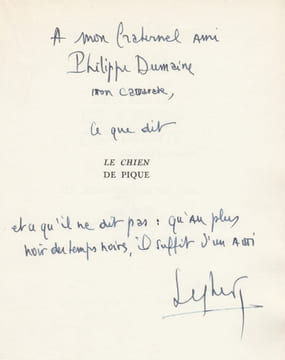 A mon fraternel ami
Philippe Dumaine
mon camarade,
Ce que dit
LE CHIEN
DE PIQUE
et ce qu'il ne dit pas : qu'au plus
noir des temps noirs, il suffit d'un ami